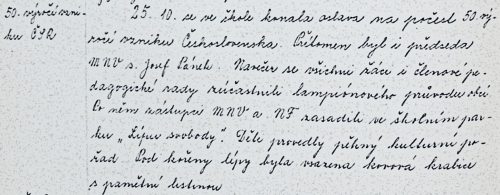 50. výročí vzni-
ku ČSR
25. 10. se ve škole konala oslava na počest 50. vý-
ročí vzniku Československa. Přítomen byl i předseda
MNV s. Josef Pánek. Navečer se všichni žáci i členové pe-
dagogické rady zúčastnili lampiónového průvodu obcí
Po něm zástupci MNV a NF zasadili ve školním par-
ku „Lípu svobody". Děti provedly pěkný kulturní po-
řad Pod kořeny lípy byla vsazena kovová krabice
s pamětní listinou